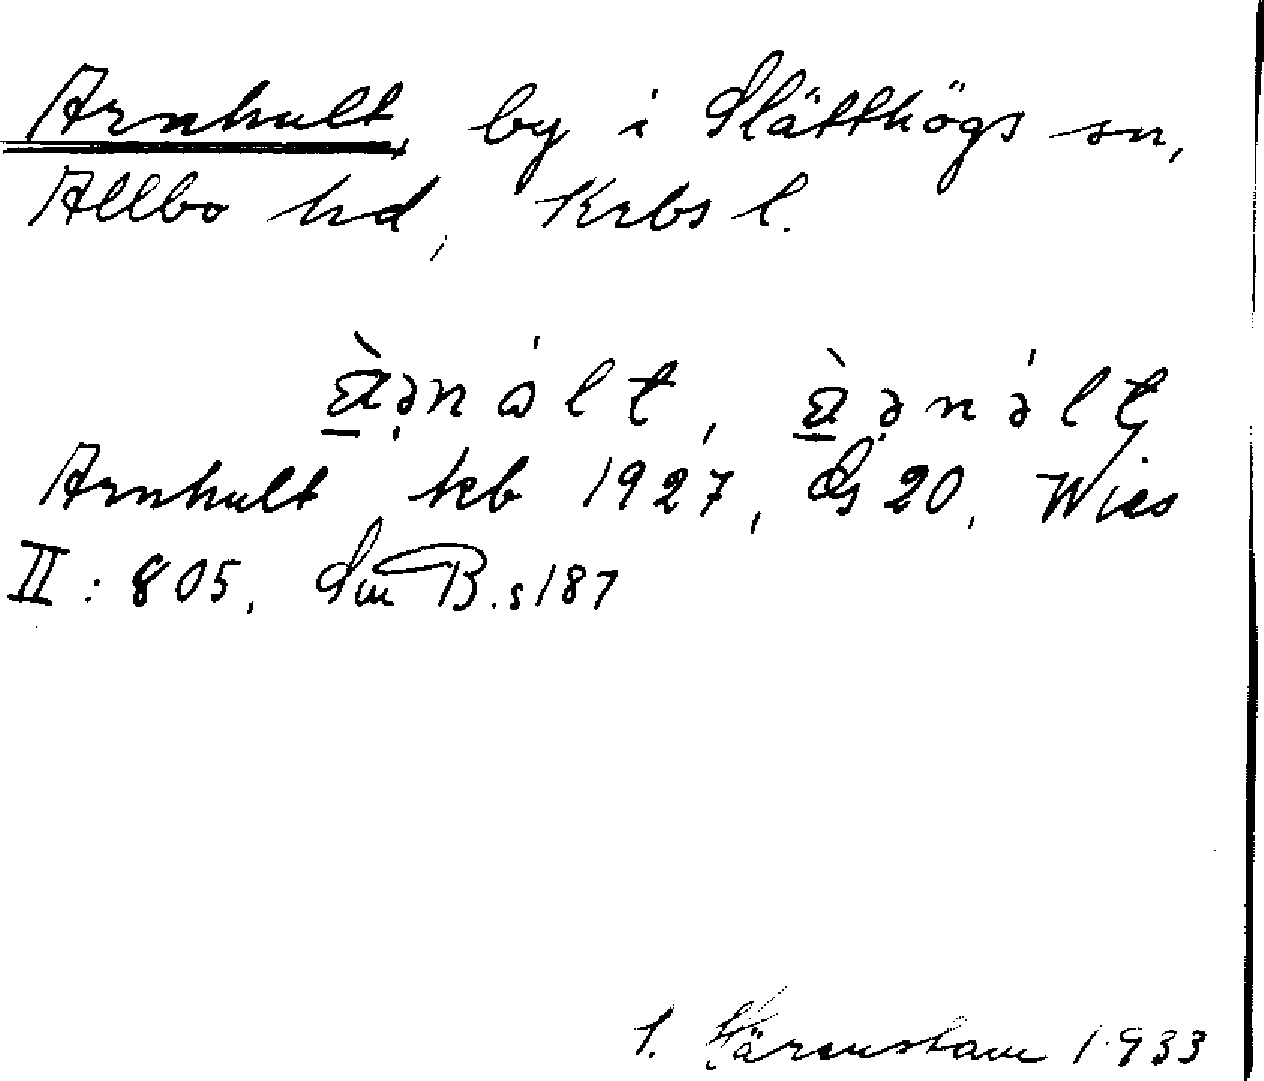 Arnhult, by i Slätthögs sn,
Allbo hd, Krbs l.
à̱ə̣nålt, à̱ə̣nəlt
Arnhult kb 1927, Gs 20, Wies
II: 805, Sm B. s 187
1933